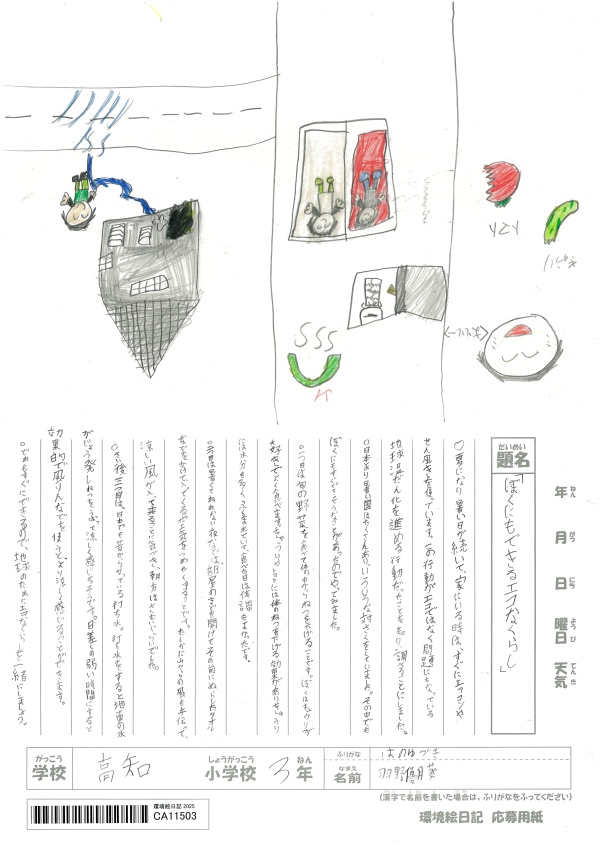 年ねん 月がつ 日にち 曜日ようび 天気てんき
題名だいめい
「ぼくにもできるエコなくらし」
○夏になり暑い日が続いて、家にいる時は、すぐにエアコンや
せん風きを使っています。この行動がエコではなく問題にもなっている
地球温だん化を進める行動だったことを知り調べることにしました。
○日本より暑い国はたくさんあり、いろいろな対さくをしていました。その中でも
ぼくにもすぐにできそうなことがあったのでやってみました。
○一つ目は旬の野菜を食べて体の中からねつを下げることです。ぼくはキュウリが
大好きでよく食べます。
には水分も多くふくまれていて、食べた日は体調もよかったです。
○二つ目は暑くてねれない夜
などをかけて入ってくる空気をつめたくすることです。
涼しい風が入って来ることに気づき、朝方はさむいぐらいでした。
○さい後三つ目は、日本でも昔からやっている打ち水。打ち水をすると地面の水
がじょう発しねつをうばって涼しく感じるそうです。日差しの弱い時間にすると
効果的で風りんなどを使うとより涼しく感じることができます。
○どれもすぐにできるので地球のためにエコなくらしを一緒にしましょう。
がっこう
学校 高知 しょうがっこう小学校 3 ねん年
ふりがな はのゆづき
なまえ
名前 羽野
(漢字で名前を書いた場合は、ふりがなをふってください)
環境絵日記2025
CA11503
環境絵日記 応募用紙